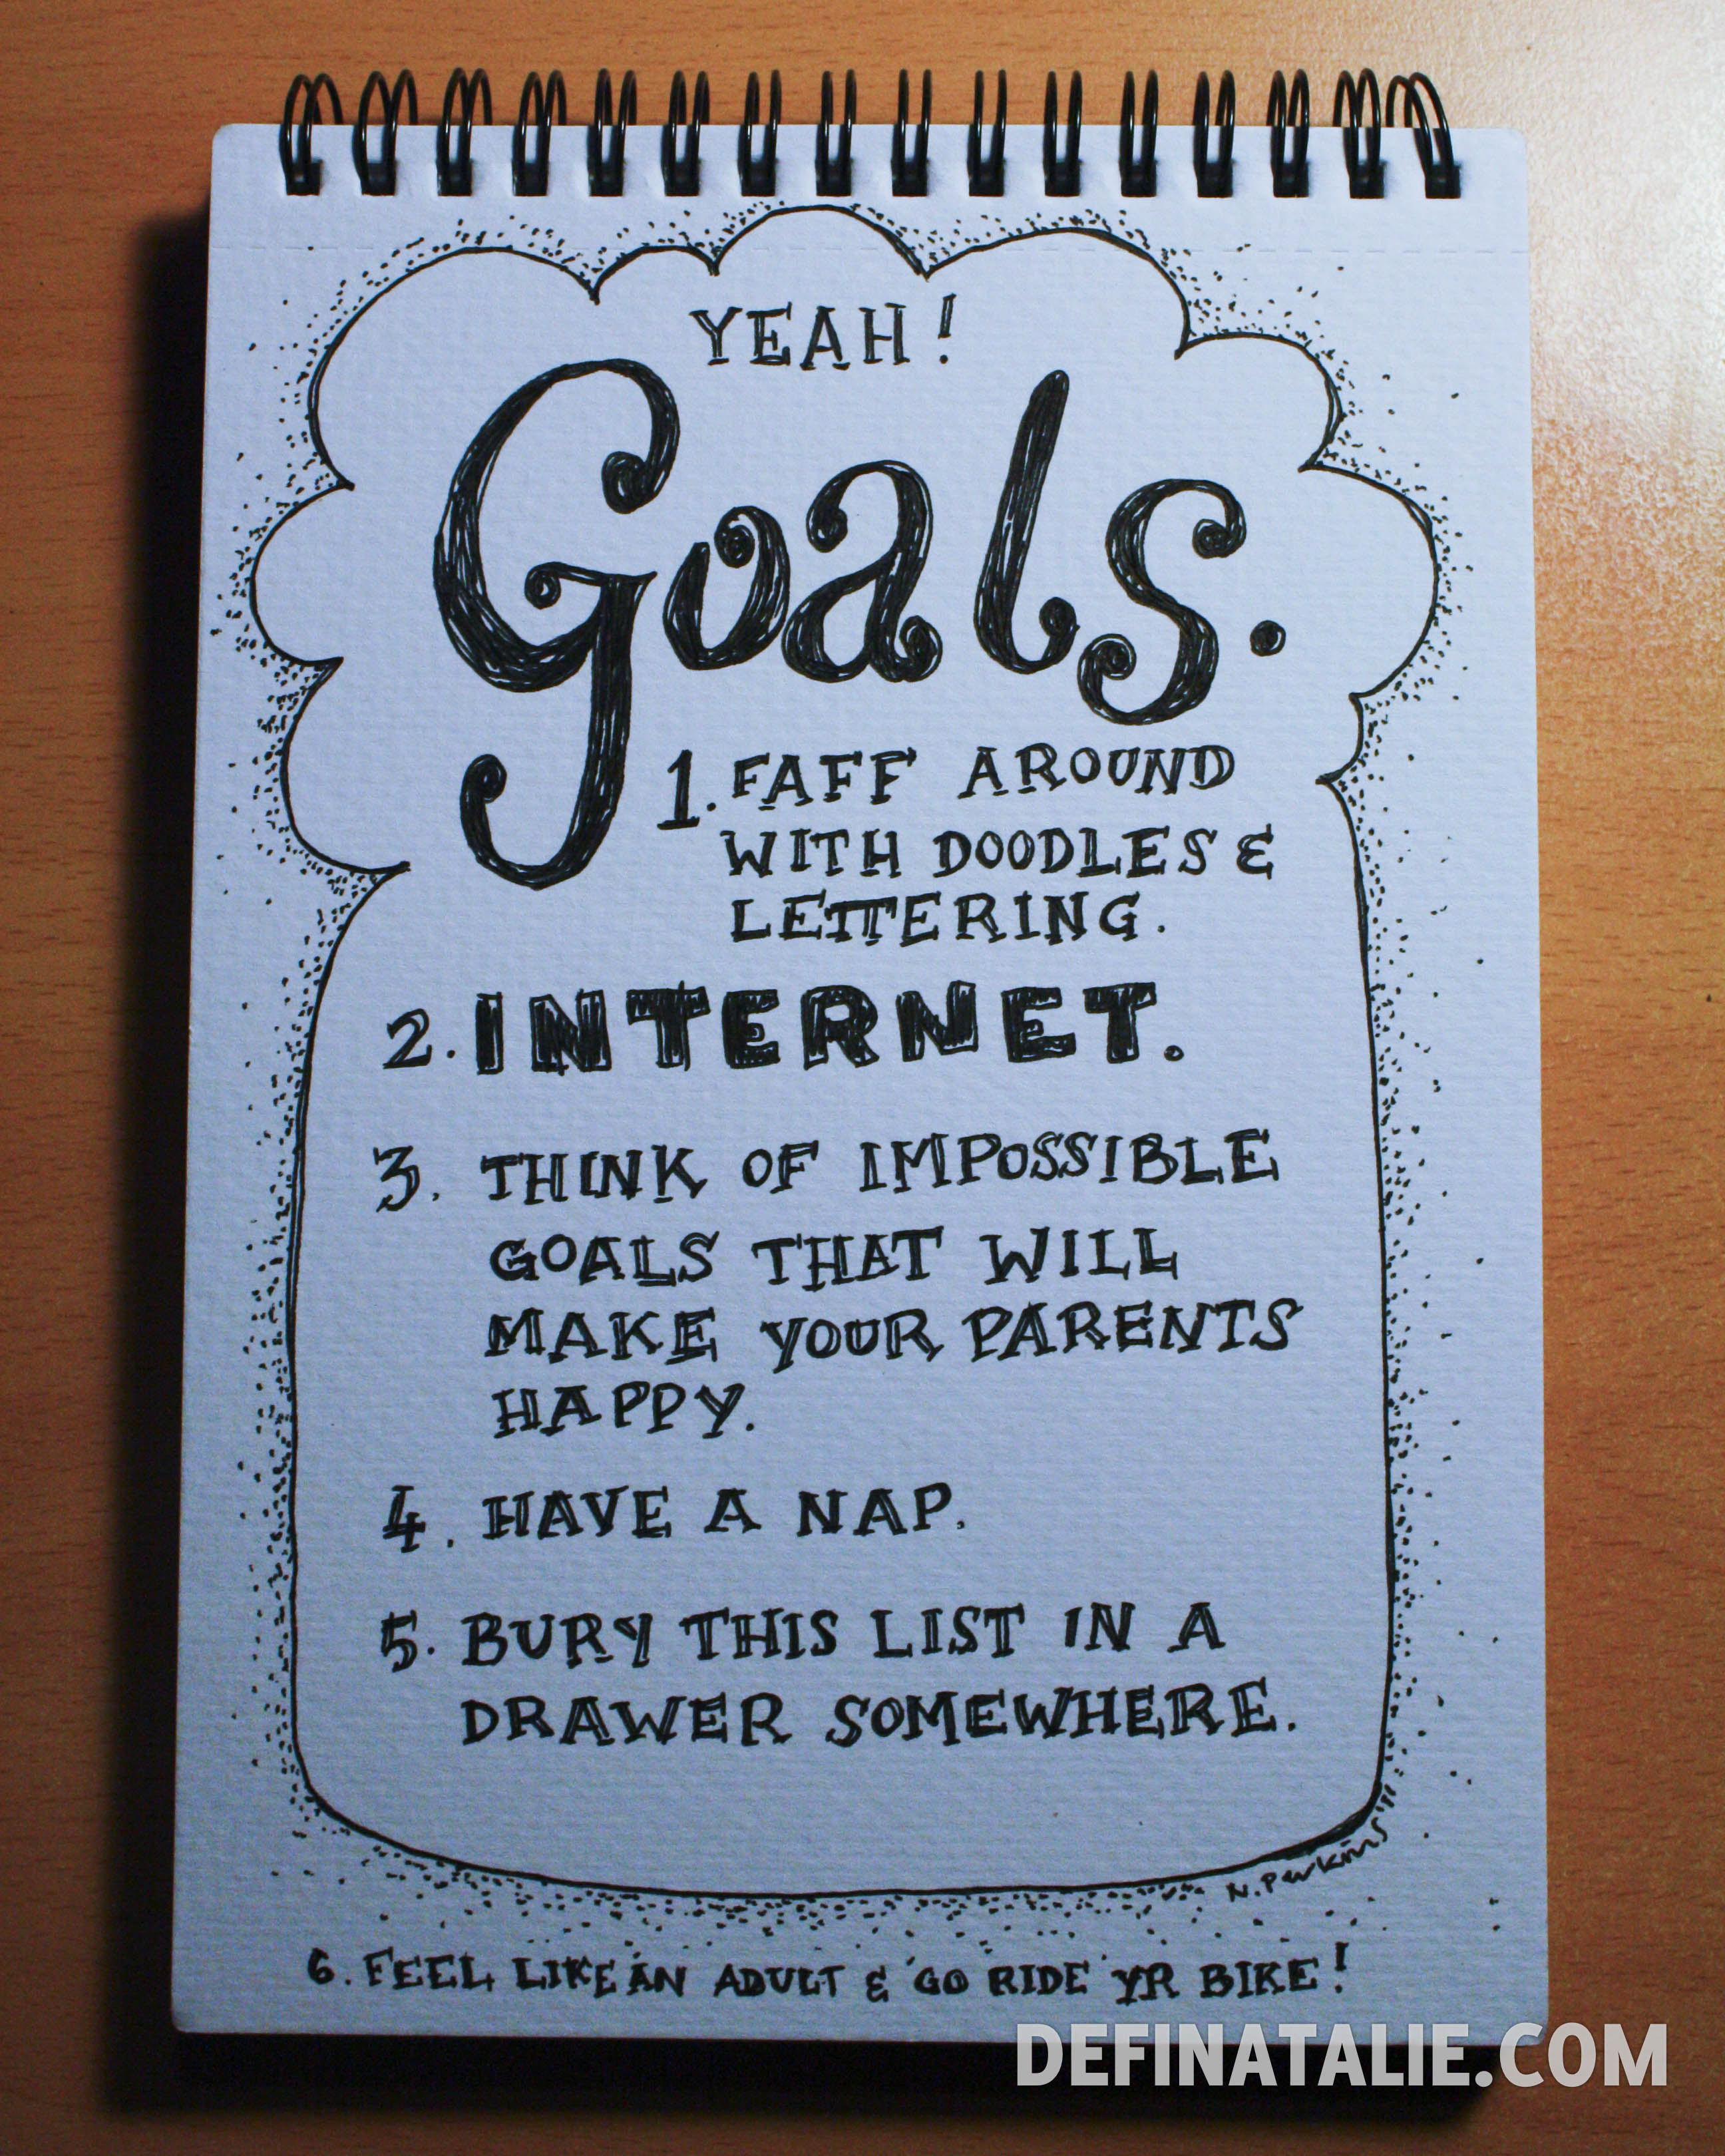 YEAH!
Goals.
1. FAFF AROUND
WITH DOODLES &
LETTERING.
2. INTERNET.
3. THINK OF IMPOSSIBLE
GOALS THAT WILL
MAKE YOUR PARENTS
HAPPY.
4. HAVE A NAP.
5. BURY THIS LIST IN A
DRAWER SOMEWHERE.
N. Perkins
6. FEEL LIKE AN ADULT & GO RIDE YR BIKE!
DEFINATALIE.COM